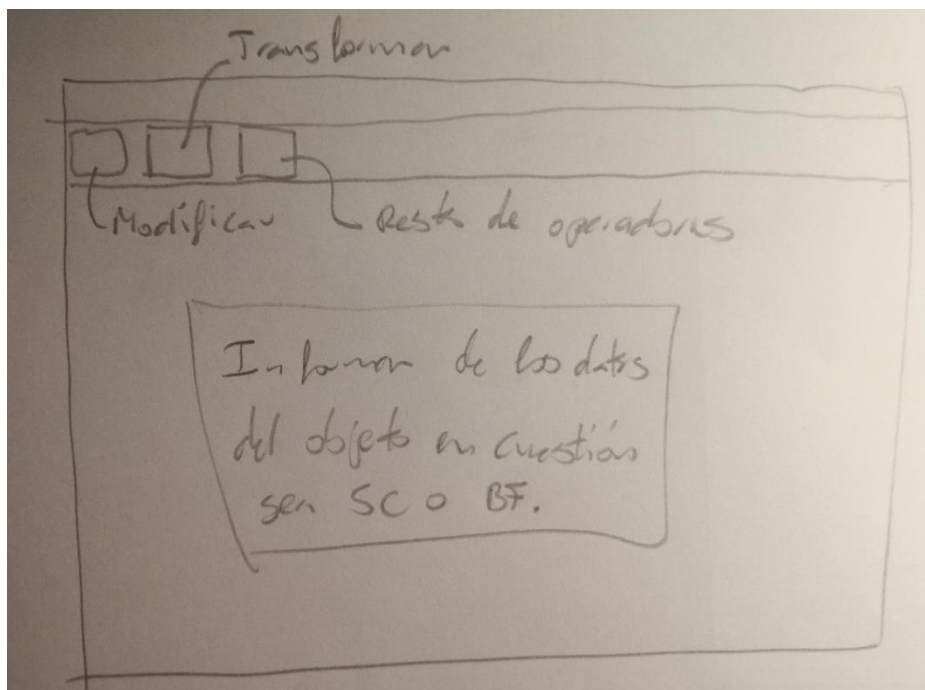 Transformar
Modificar
Resto de operadores
Informar de los datos
del objeto en cuestión
sea SC o BF.